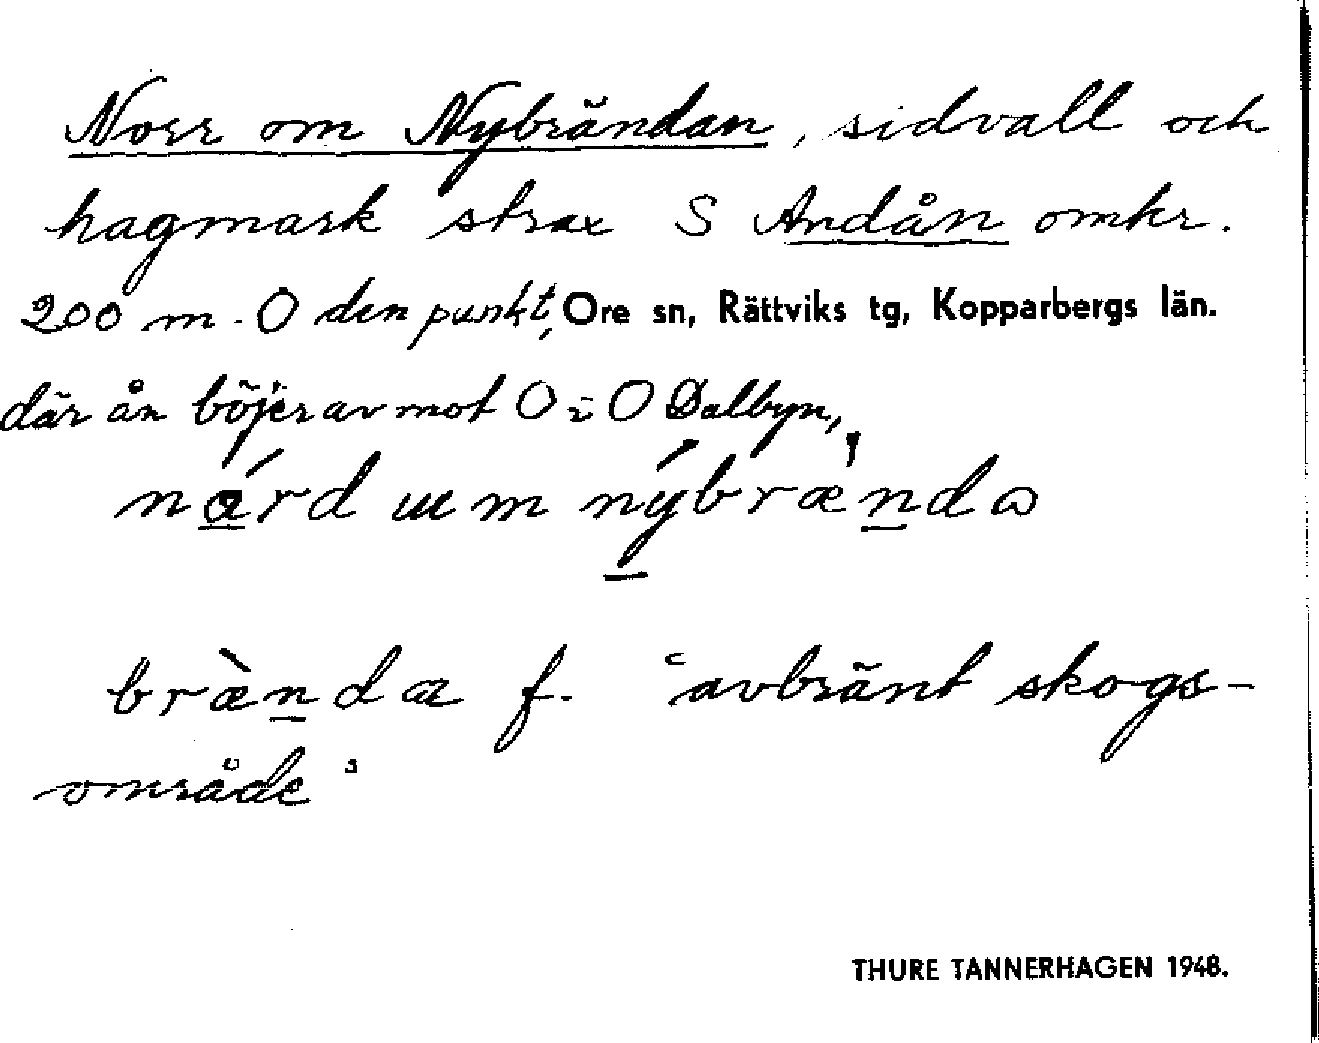 Norr om Nybrändan, sidvall och
hagmark strax S Andån omkr.
200 m. O den punkt, Ore sn, Rättviks tg, Kopparbergs län.
där ån böjer av mot O i O Dalbyn,
brända f. "avbränt skogs-
område"
THURE TANNERHAGEN 1948.